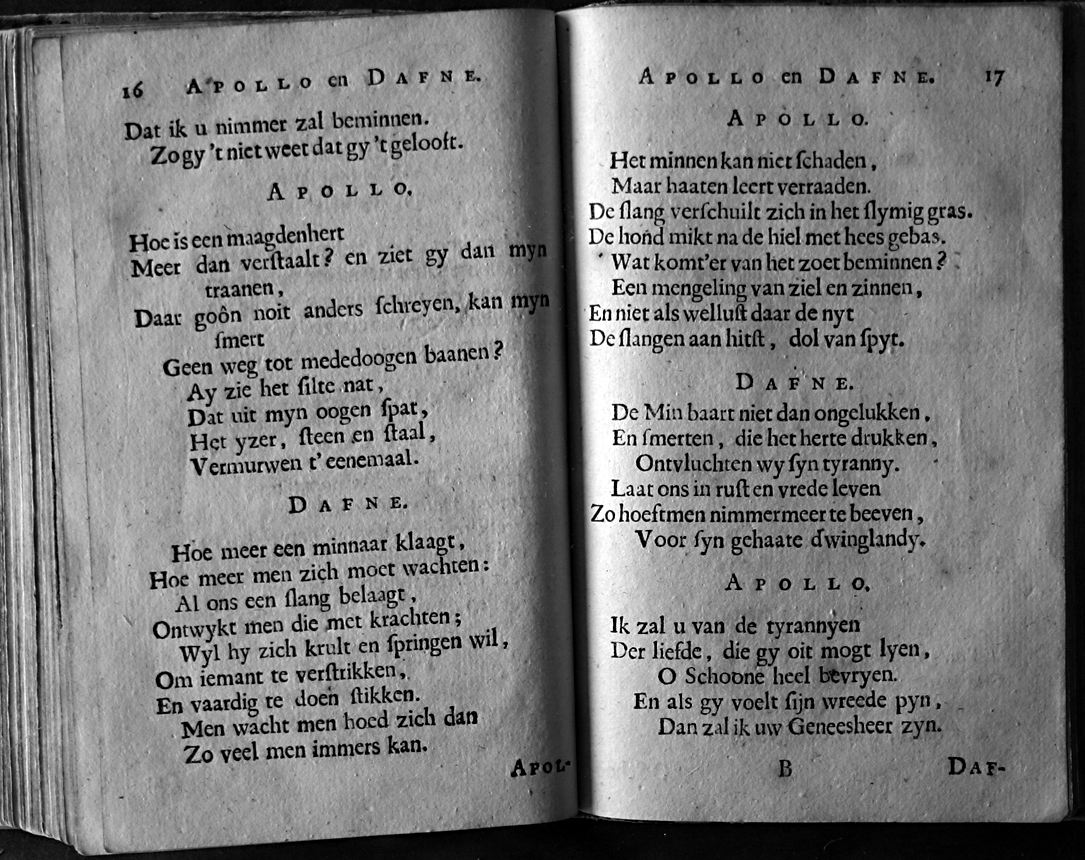 16 APOLLO en DAFNE.
Dat ik u nimmer zal beminnen.
Zo gy 't niet weet dat gy 't gelooft.
APOLLO.
Hoe is een maagdenhert
Meer dan verſtaalt? en ziet gy dan myn
traanen,
Daar goôn noit anders ſchreyen, kan myn
ſmert
Geen weg tot mededoogen baanen?
Ay zie het ſilte nat,
Dat uit myn oogen ſpat,
Het yzer, ſteen en ſtaal,
Vermurwen t' eenemaal.
DAFNE.
Hoe meer een minnaar klaagt,
Hoe meer men zich moet wachten:
Al ons een ſlang belaagt,
Ontwykt men die met krachten;
Wyl hy zich krult en ſpringen wil,
Om iemant te verſtrikken,
En vaardig te doen ſtikken.
Men wacht men hoed zich dan
Zo veel men immers kan.
APOL-
APOLLO en DAFNE. 17
APOLLO.
Het minnen kan niet ſchaden,
Maar haaten leert verraaden.
De ſlang verſchuilt zich in het ſlymig gras.
De hond mikt na de hiel met hees gebas.
Wat komt'er van het zoet beminnen?
Een mengeling van ziel en zinnen,
En niet als welluſt daar de nyt
De ſlangen aan hitſt, dol van ſpyt.
DAFNE.
De Min baart niet dan ongelukken,
En ſmerten, die het herte drukken,
Ontvluchten wy ſyn tyranny.
Laat ons in ruſt en vrede leven
Zo hoeftmen nimmermeer te beeven,
Voor ſyn gehaate dwinglandy.
APOLLO.
Ik zal u van de tyrannyen
Der liefde, die gy oit mogt lyen,
O Schoone heel bevryen.
En als gy voelt ſijn wreede pyn,
Dan zal ik uw Geneesheer zyn.
B DAF-